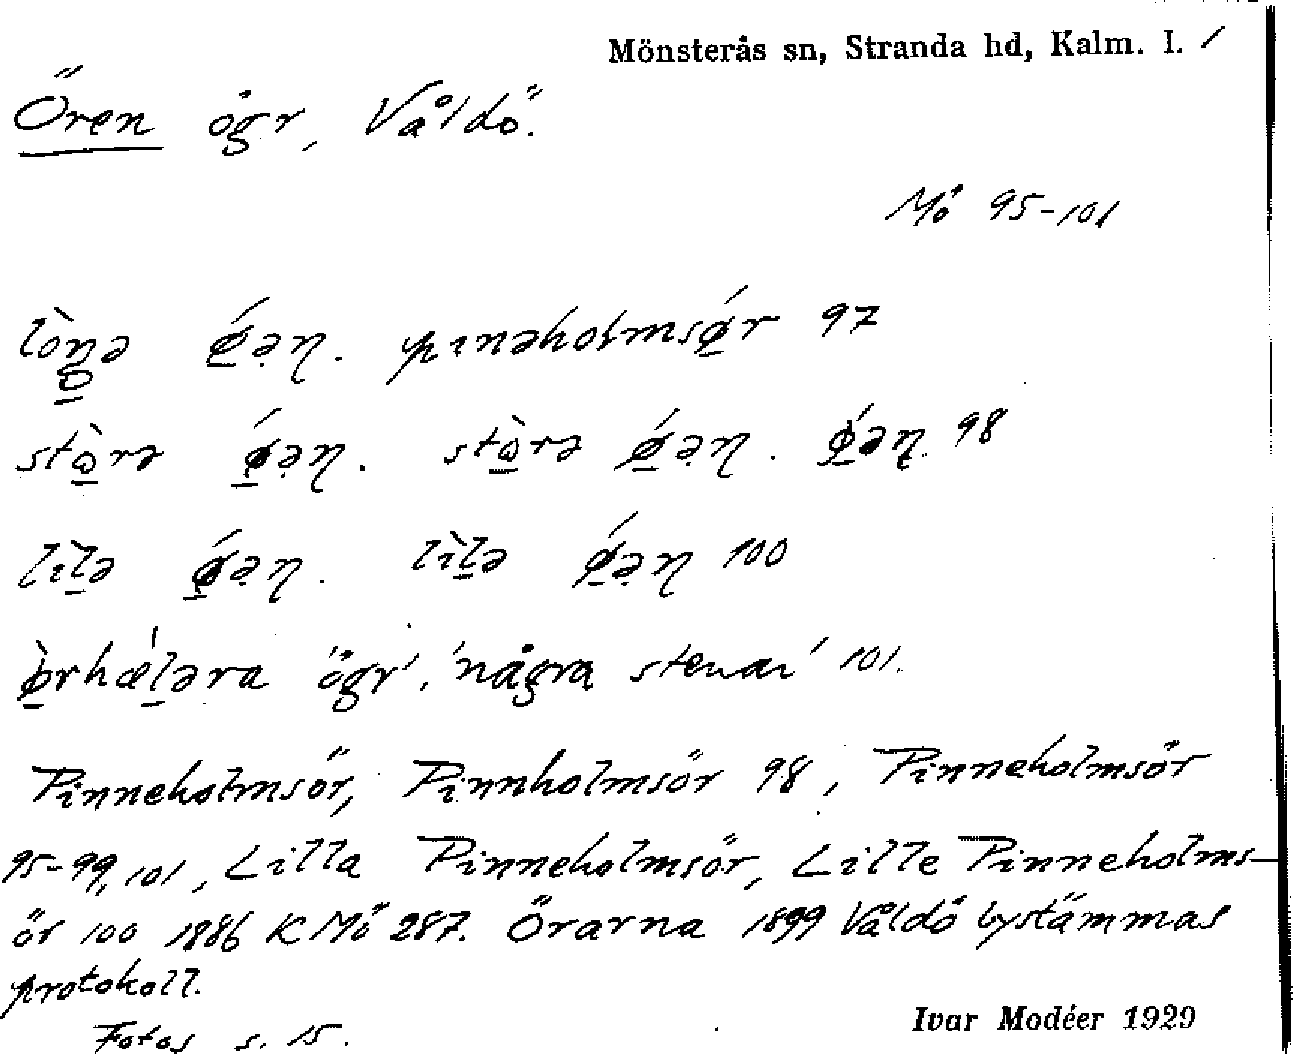 Mönsterås sn, Stranda hd, Kalm. l. /
Ören ögr, Våldö.
Mö 95-101
lòŋə ǿəɳ. pınəholmsǿr 97
stòrə ǿəɳ. stòrə ǿəɳ. ǿəɳ 98
lìlə ǿəɳ. lìlə ǿəɳ 100
ø̀rhæləra 'ögr', 'några stenar' 101.
Pinneholmsör, Pinnholmsör 98, Pinneholmsör
95-99, 101, Lilla Pinneholmsör, Lille Pinneholms-
ör 100 1886 K Mö 287. Örarna 1899 Våldö bystämmas
protokoll.
Fotos s. 15.
Ivar Modéer 1929